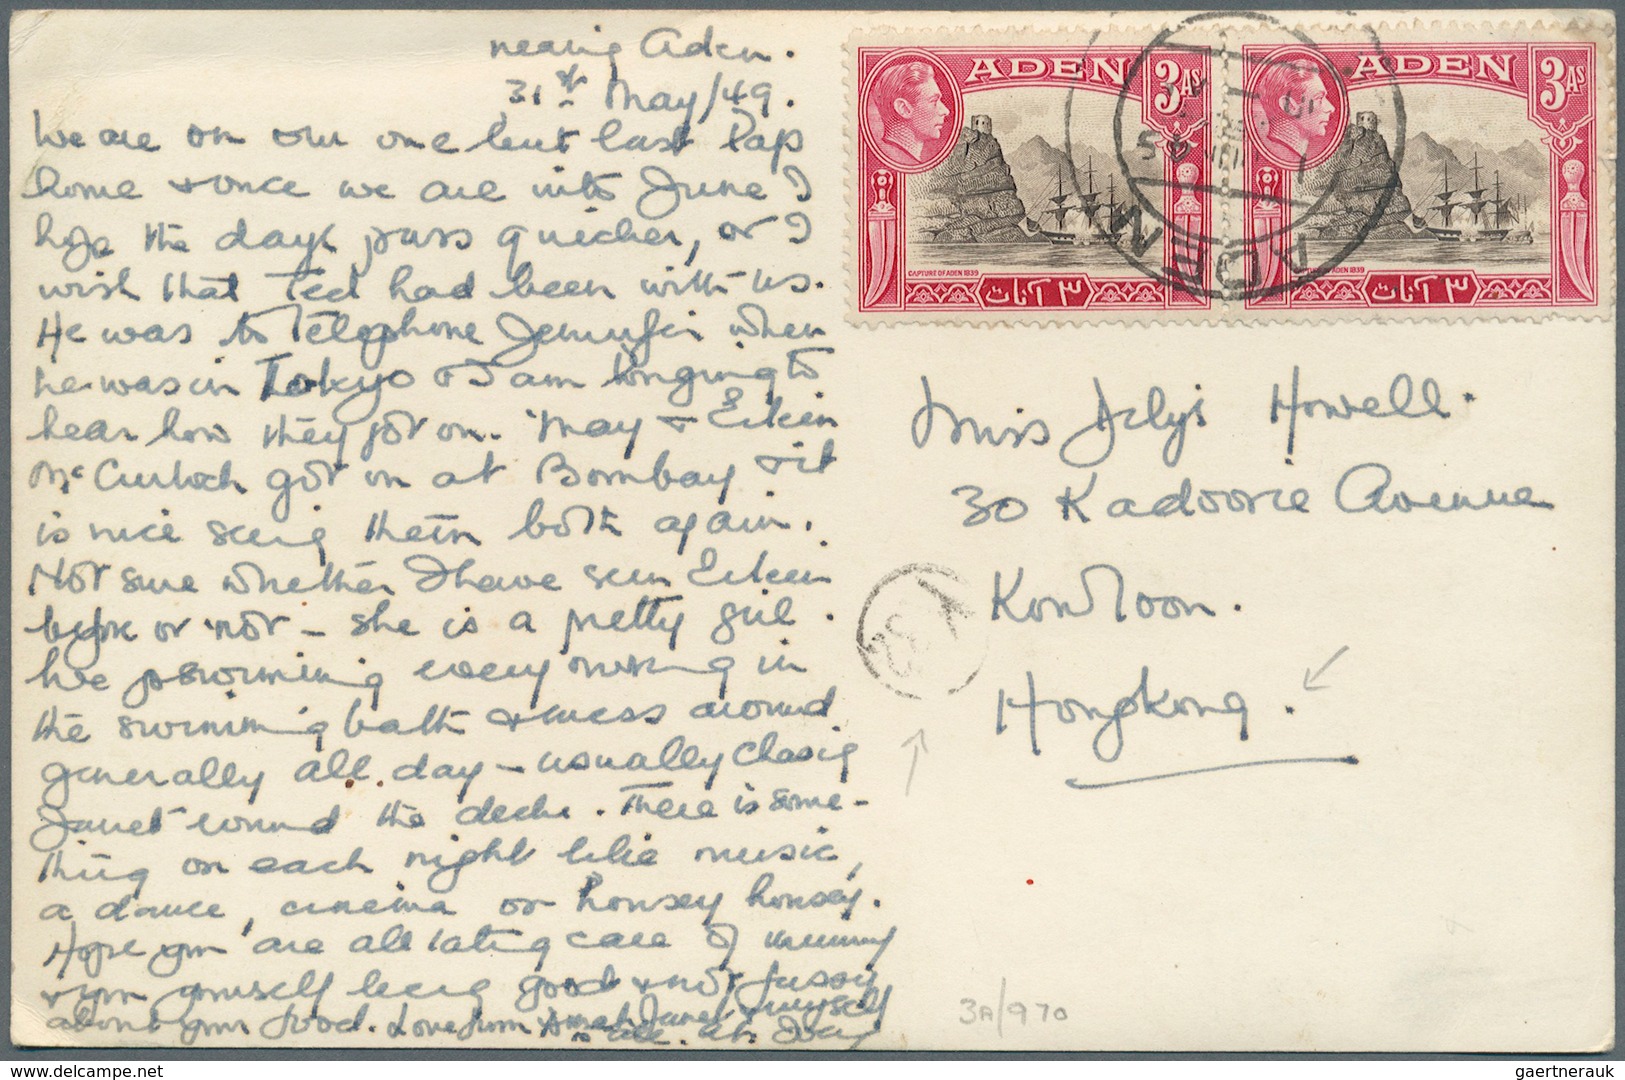 nearing Aden.
31st May/49.
We are on our one but last lap
home & once we are into June I
hope the days pass quicker, or I
wish that Ted had been with us.
He was to Telephone Jennifer when
he was in Tokyo & I am longing to
hear how they got on. May & Eileen
McCulloch got on at Bombay & it
is nice seeing them both again.
Not sure whether I have seen Eileen
before or not - she is a pretty girl.
We swimming every morning in
the swimming bath & mess around
generally all day - usually chasing
Janet round the decks. There is some-
thing on each night like music,
a dance, cinema or housey housey.
Hope you are all taking care of mummy
& you yourself being good & not fussy
about your food. Love from Janet & myself
ADEN
3AS
CAPTURE OF ADEN 1839
٣ آنات
ADEN
3AS
CAPTURE OF ADEN 1839
٣ آنات
ADEN
Miss Dilys Howell.
30 Kadoorie Avenue
Kowloon.
Hongkong.
3A/970
www.delcampe.net
gaertnerauk